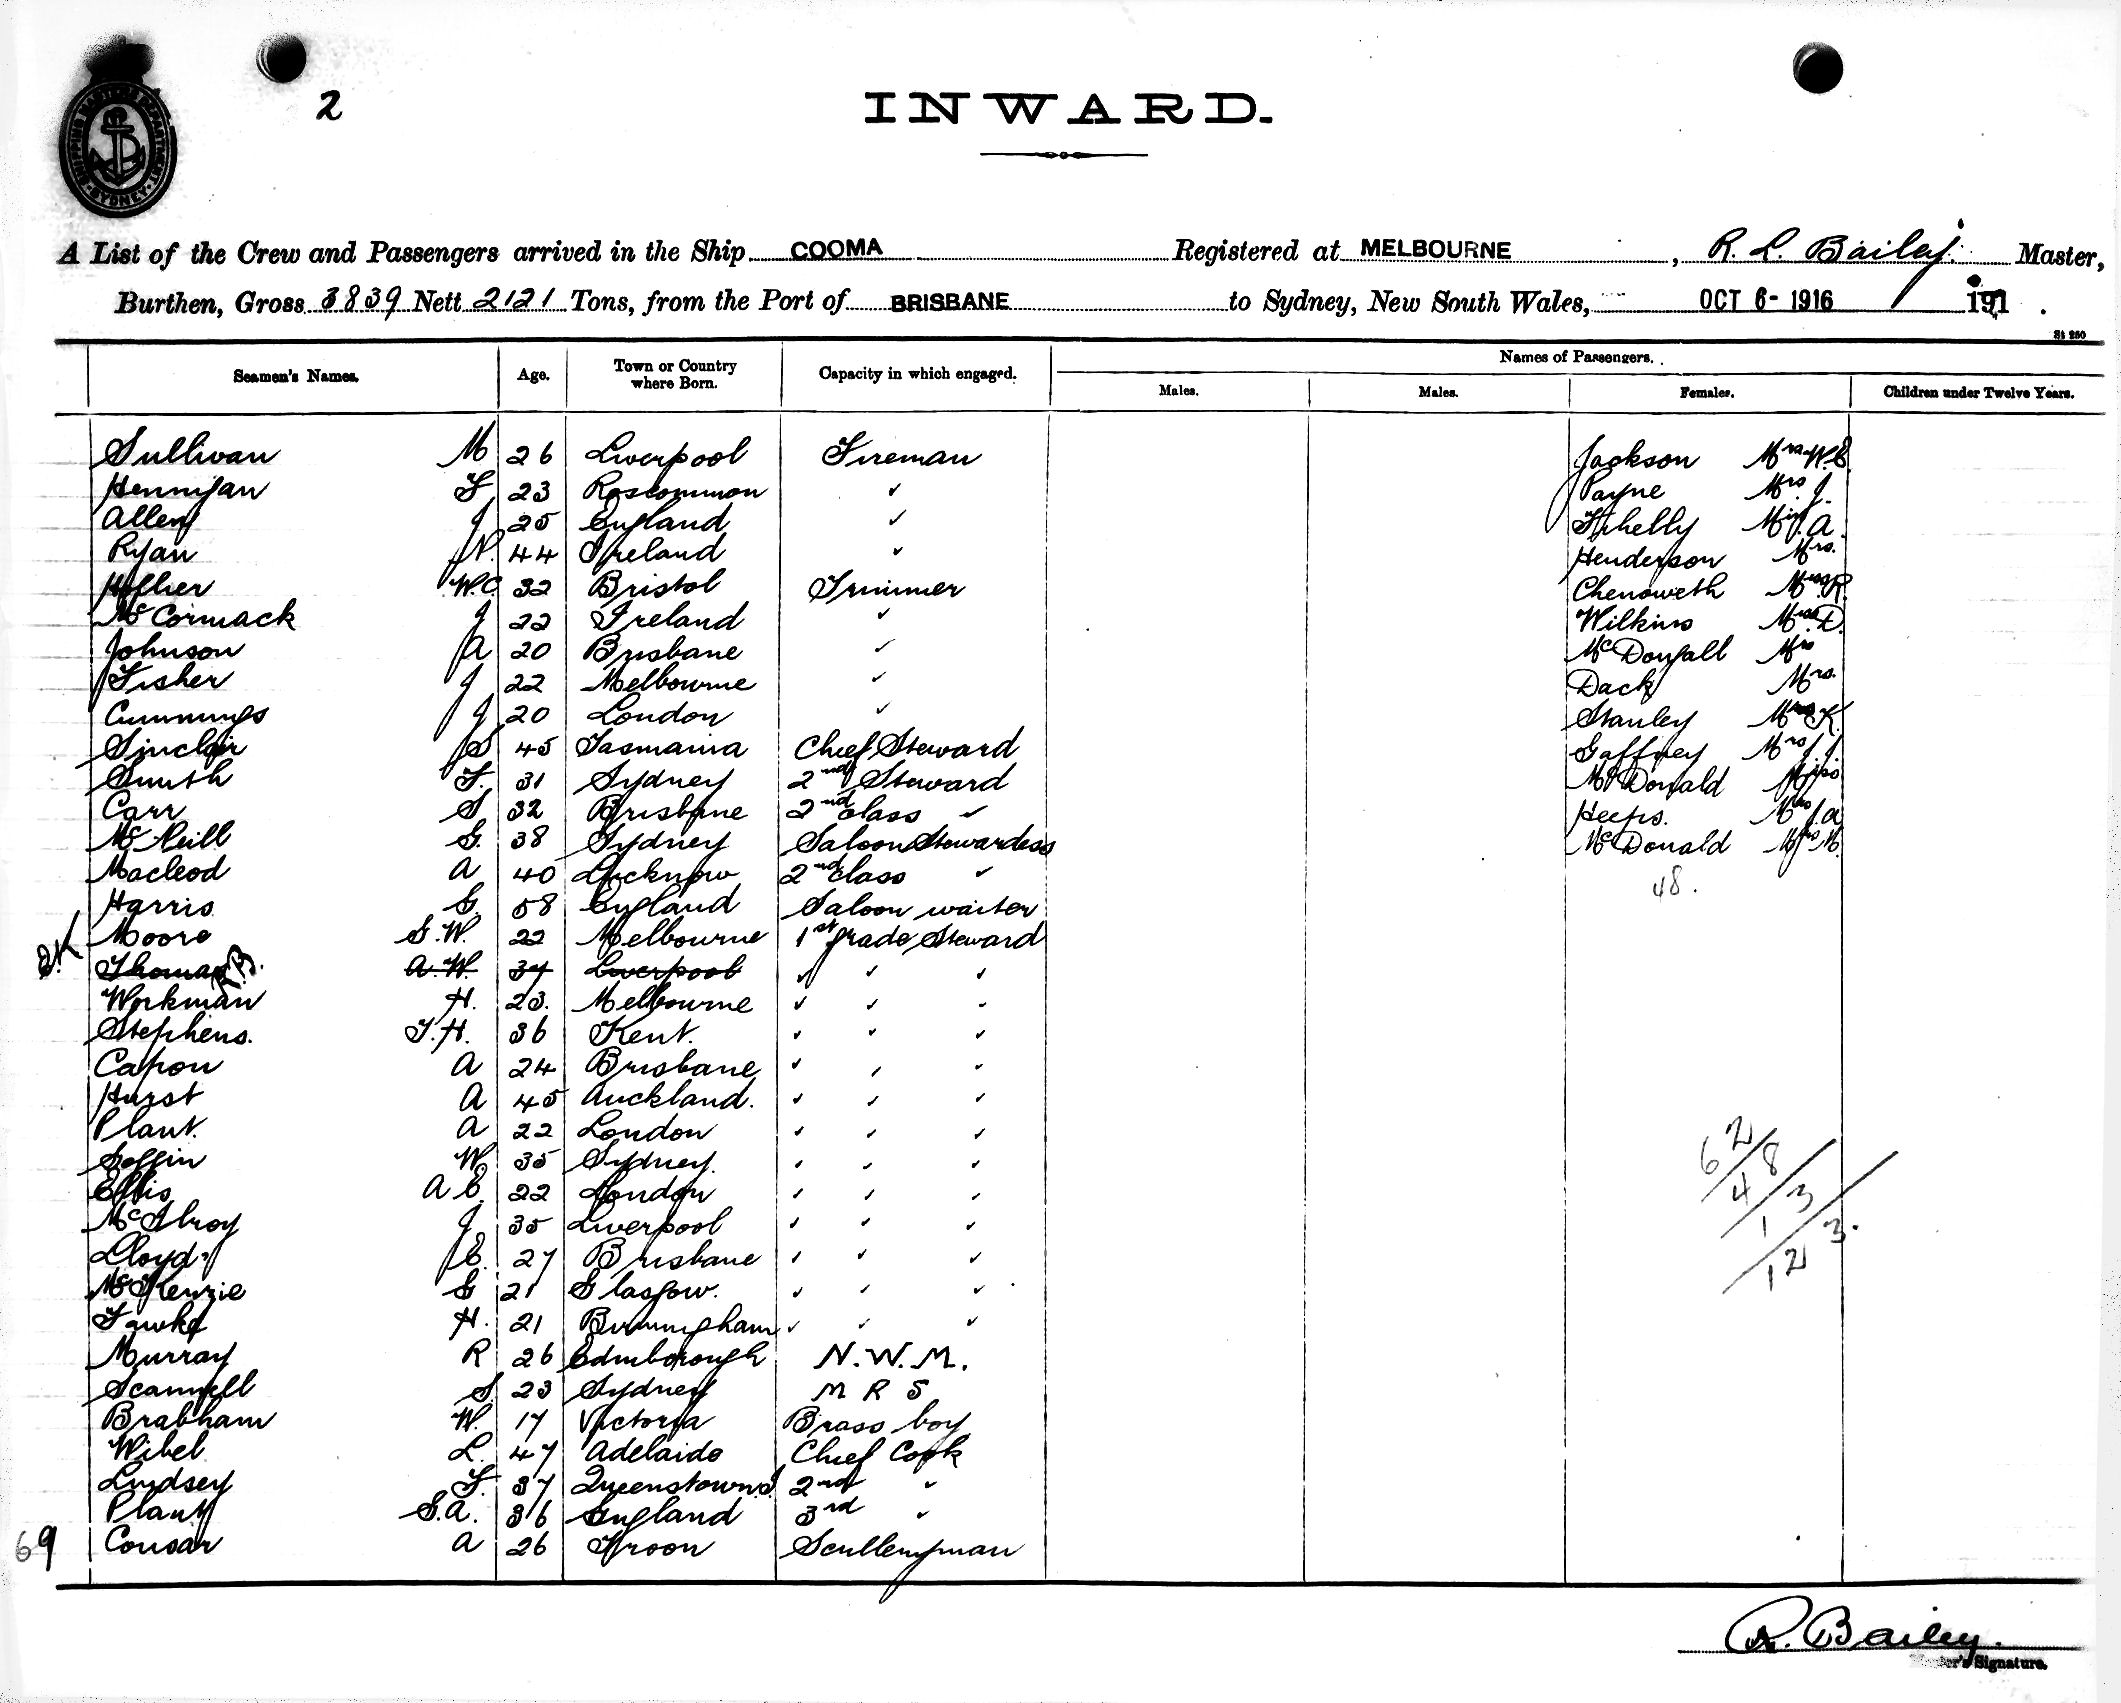 SHIPPING MASTERS DEPARTMENT · SYDNEY ·
2
INWARD.
A List of the Crew and Passengers arrived in the Ship COOMA Registered at MELBOURNE, R. L. Bailey. Master,
Burthen, Gross 3839 Nett 2121 Tons, from the Port of BRISBANE to Sydney, New South Wales, OCT 6- 1916 191 .
St 250
Names of Passengers.
Seamen's Names. Age. Town or Country where Born. Capacity in which engaged. Males. Males. Females. Children under Twelve Years.
Sullivan M 26 Liverpool Fireman Jackson Mrs W.E.
Hennigan F 23 Roscommon ✓ Payne Mrs. J.
Allen J 25 England ✓ A
Ryan N. 44 Ireland ✓ Henderson Mrs.
Hillier W.C. 32 Bristol Trimmer Chenoweth R.
McCormack J 22 Ireland ✓ Wilkins D.
Johnson A 20 Brisbane ✓ McDougall Mrs
Fisher J 22 Melbourne ✓ Dack Mrs.
Cummings J 20 London ✓ Stanley K
Sinclair S 45 Tasmania Chief Steward Gaffney Mrs J.
Smith F. 31 Sydney 2nd Steward McDonald Miss
Carr S 32 Brisbane 2nd class ✓ Heeps. Mrs J.A
McNeill G. 38 Sydney Saloon Stewardess McDonald Mrs M.
Macleod A 40 Lucknow 2nd class ✓ 48.
Harris G. 58 England Saloon waiter
Moore G.W. 22 Melbourne 1st grade Steward
Thomas R.B. A.W. 37 Liverpool ✓ ✓ ✓
Workman H. 23. Melbourne ✓ ✓ ✓
Stephens. T.H. 36 Kent. ✓ ✓ ✓
Capon A 24 Brisbane ✓ ✓ ✓
Hurst A 45 Auckland. ✓ ✓ ✓
Plant. A 22 London ✓ ✓ ✓
W. 35 Sydney. ✓ ✓ ✓
Ellis A E. 22 London ✓ ✓ ✓
McIlroy J 35 Liverpool ✓ ✓ ✓
Lloyd E. 27 Brisbane ✓ ✓ ✓
McKenzie G 21 Glasgow. ✓ ✓ ✓
Fawke H. 21 Birmingham ✓ ✓ ✓
Murray R 26 Edinborough N.W.M.
Scannell S. 23 Sydney M R S
Brabham W. 17 Victoria Brass boy
Wibel L. 47 Adelaide Chief Cook
Lindsey F. 37 Queenstown 2nd ✓
Plant G.A. 36 England 3rd ✓
69 Cousar A 26 Troon Sculleryman
62/48/13/123.
R. Bailey.
Master's Signature.